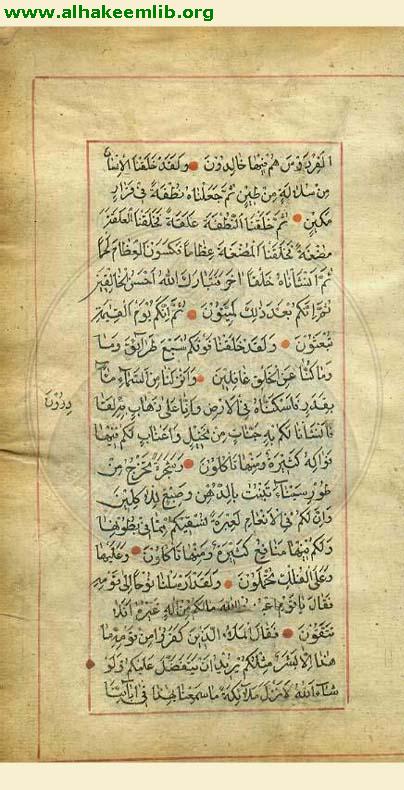 www.alhakeemlib.org
الفردوس هم فيها خالدون ولقد خلقنا الانسان
من سلالة من طين ثم جعلناه نطفة في قرار
مكين ثم خلقنا النطفة علقة فخلقنا العلقة
مضغة فخلقنا المضغة عظاما فكسونا العظام لحما
ثم انشاناه خلقا اخر فتبارك الله احسن الخالقين
ثم انكم بعد ذلك لميتون ثم انكم يوم القيمة
تبعثون ولقد خلقنا فوقكم سبع طرائق وما
وما كنا عن الخلق غافلين وانزلنا من السماء ماء
بقدر فاسكناه في الارض وانا على ذهاب به لقا
فانشانا لكم به جنات من نخيل واعناب لكم فيها
فواكه كثيرة ومنها تاكلون وشجرة تخرج من
طور سيناء تنبت بالدهن وصبغ للاكلين
وان لكم في الانعام لعبرة نسقيكم مما في بطونها
ولكم فيها منافع كثيرة ومنها تاكلون وعليها
وعلى الفلك تحملون ولقد ارسلنا نوحا الى قومه
فقال يا قوم الله مالكم من اله غيره افلا
تتقون فقال الملاء الذين كفروا من قومه ما
هذا الا بشر مثلكم يريد ان يتفضل عليكم ولو
شاء الله لانزل ملائكة ما سمعنا بهذا في ابائنا